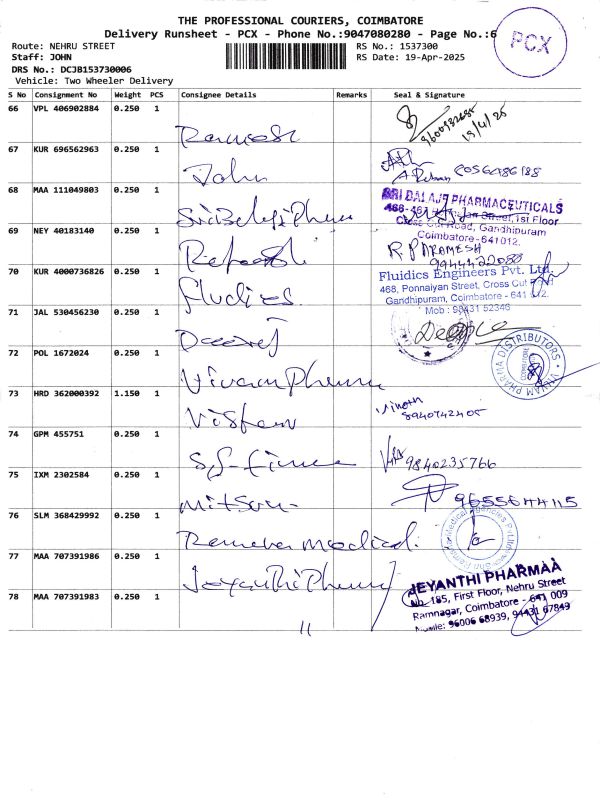 THE PROFESSIONAL COURIERS, COIMBATORE
Delivery Runsheet - PCX - Phone No.:9047080280 - Page No.:6
PCX
Route: NEHRU STREET
RS No.: 1537300
Staff: JOHN
RS Date: 19-Apr-2025
DRS No.: DCJB153730006
Vehicle: Two Wheeler Delivery
S No Consignment No Weight PCS Consignee Details Remarks Seal & Signature
66 VPL 406902884 0.250 1
19/4/25
Ramesh
67 KUR 696562963 0.250 1
John
68 MAA 111049803 0.250 1
SRI BALAJI PHARMACEUTICALS
Street, 1st Floor
Cross Cut Road, Gandhipuram
Coimbatore-641012.
69 NEY 40183140 0.250 1
9944422088
70 KUR 4000736826 0.250 1
Fluidics Engineers Pvt. Ltd.
468, Ponnaiyan Street, Cross Cut Road
Gandhipuram, Coimbatore - 641 012.
Mob : 98431 52346
Fludics
71 JAL 530456230 0.250 1
72 POL 1672024 0.250 1
PHARMA DISTRIBUTORS
COIMBATORE
73 HRD 362000392 1.150 1
Vinoth
8940742405
74 GPM 455751 0.250 1
9840235766
75 IXM 2302584 0.250 1
9655644115
76 SLM 368429992 0.250 1
Medical Agencies Pvt Ltd
77 MAA 707391986 0.250 1
Jeyanthi Pharma
JEYANTHI PHARMAA
No. 185, First Floor, Nehru Street
Ramnagar, Coimbatore - 641 009
Mobile: 96006 68939, 94431 67849
78 MAA 707391983 0.250 1
11